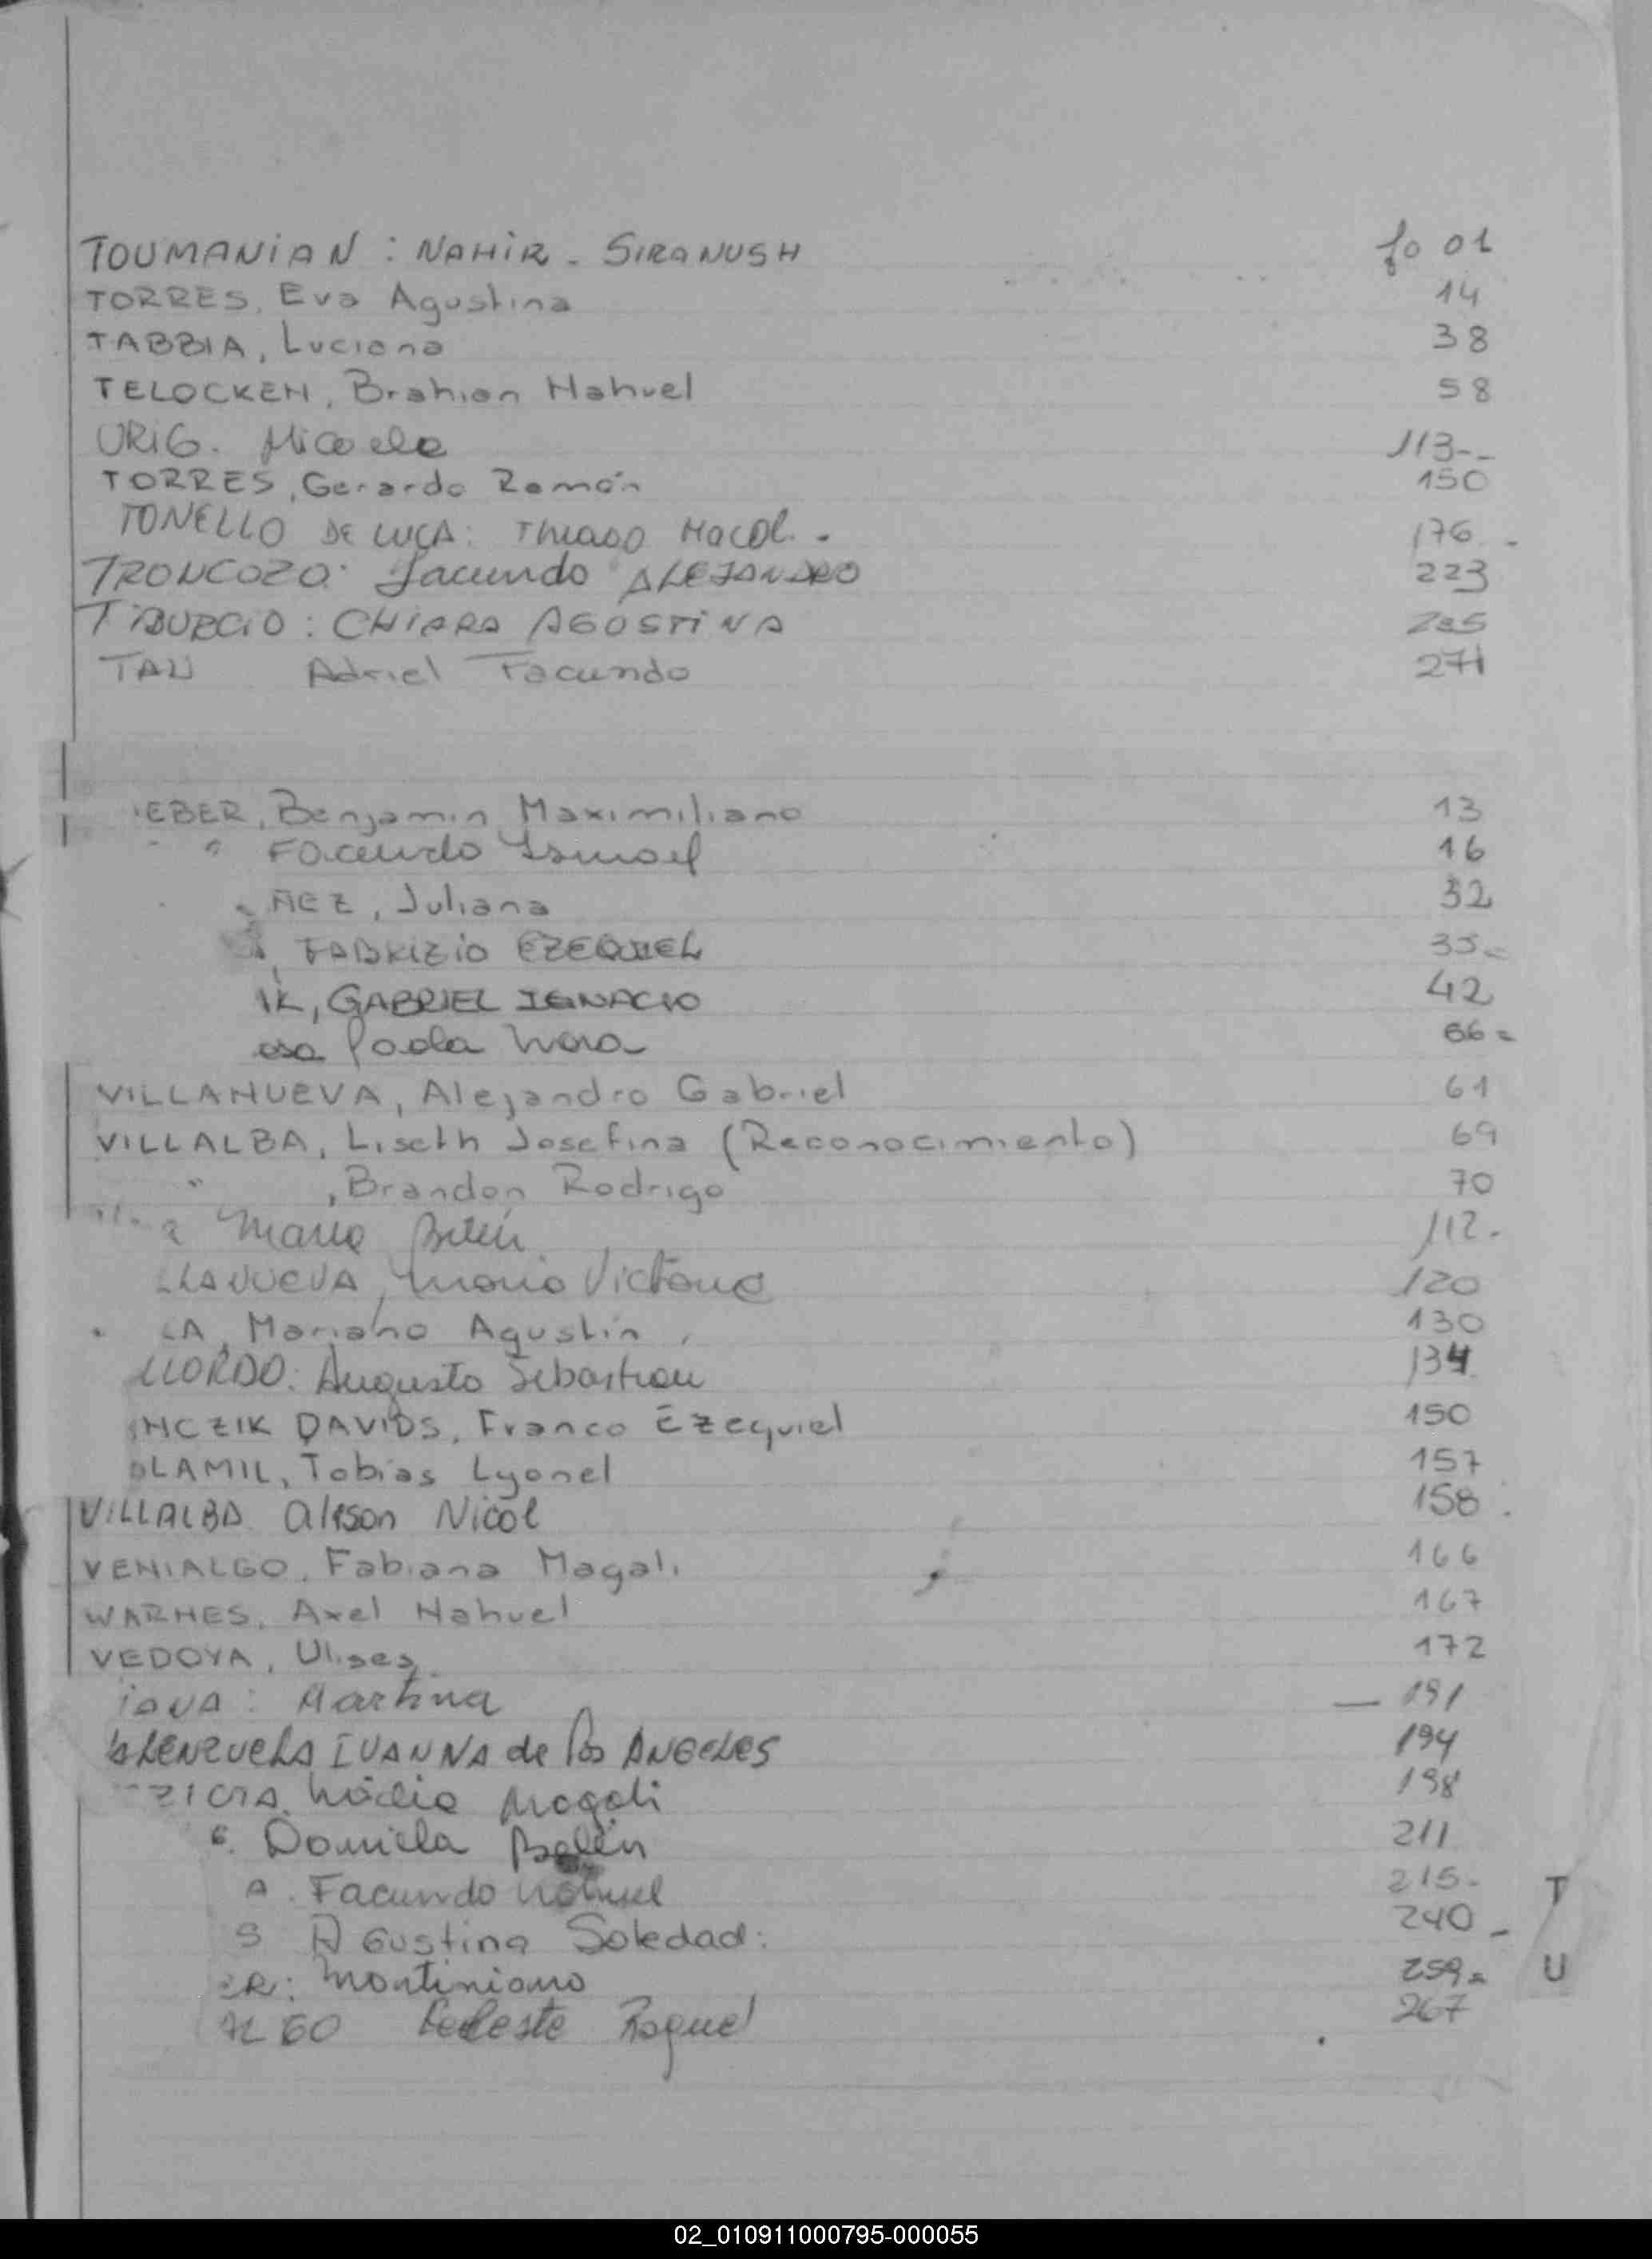 TOUMANIAN : NAHIR - SIRANUSH fo 01
TORRES, Eva Agustina 14
TABBIA, Luciana 38
TELOCKEN, Brahian Nahuel 58
URIG. Micaela 113--
TORRES, Gerardo Ramón 150
TONELLO DE LUCA: THIAGO 176 -
TRONCOZO: Facundo ALEJANDRO 223
TIBURCIO : CHIARA AGOSTINA
TAU Adriel Facundo 271
EBER, Benjamin Maximiliano 13
" " Facundo Ismael 16
ÑEZ, Juliana 32
, FABRIZIO EZEQUIEL 35-
IK, GABRIEL IGNACIO 42
osa Paola
VILLANUEVA, Alejandro Gabriel 61
VILLALBA, Liseth Josefina (Reconocimiento) 69
" , Brandon Rodrigo 70
Maria Belén 112-
LLANUEVA, Maria Victoria 120
LA, Mariano Agustin, 130
LLORDO: Augusto Sebastian 134
NCZIK DAVIDS, Franco Ezequiel 150
LAMIL, Tobias Lyonel 157
VILLALBA Alison Nicol 158.
VENIALGO, Fabiana Magali 166
WARNES, Axel Nahuel 167
VEDOYA, Ulises 172
: Martina — 191
ALENZUELA IVANNA de los ANGELES 194
Magali 198
Daniela Belén 211
A. Facundo Nahuel 215-
S AGustina Soledad: 240 -
ER: Montiniano 259-
ALGO Celeste Raquel 267
T
U
02_010911000795-000055